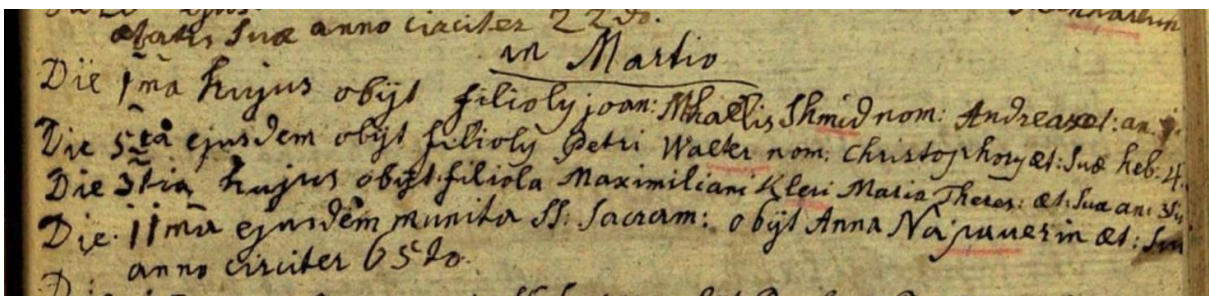 ætatis Suæ anno circiter 22do.
in Martio
Die 1ma hujus obijt filioly joan: Mhaelis Shmid nom: Andreas æt: an.
Die 5ta ejusdem obijt filioly Petri Walter nom: Christophory æt: Suæ heb. 4.
Die 3tia hujus obijt filiola Maximiliani Kleri Maria Theres: æt: Suæ an: 3tii
Die 11ma ejusdem munita SS: Sacram: obijt Anna Najpauerin æt: Suæ
anno circiter 65to.